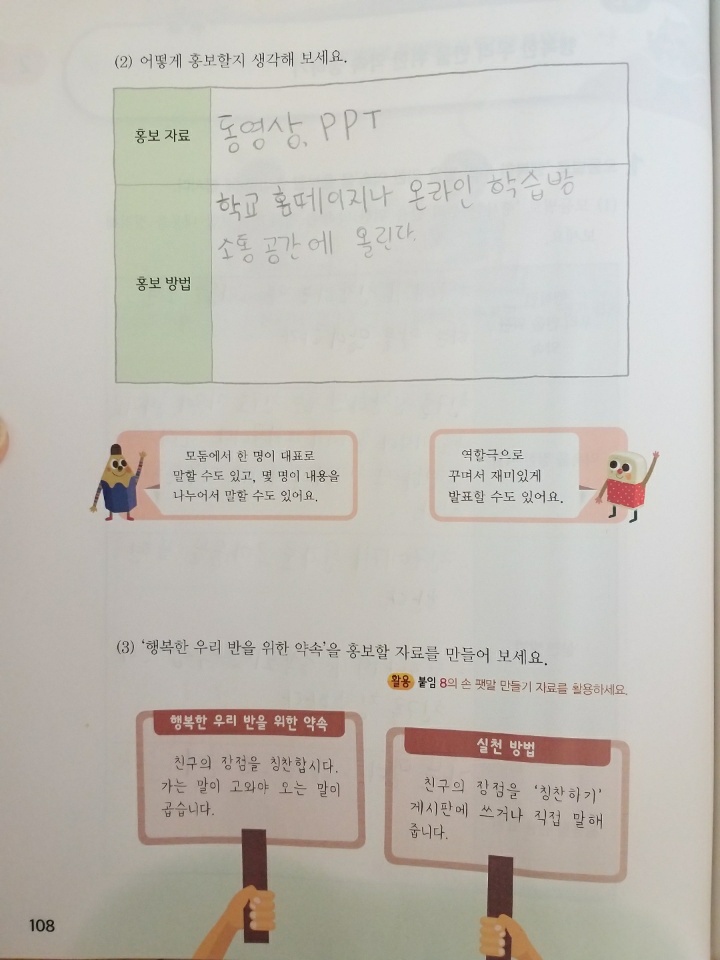 (2) 어떻게 홍보할지 생각해 보세요.
홍보 자료
동영상, PPT
홍보 방법
학교 홈페이지나 온라인 학습방
소통 공간에 올린다.
모둠에서 한 명이 대표로
말할 수도 있고, 몇 명이 내용을
나누어서 말할 수도 있어요.
역할극으로
꾸며서 재미있게
발표할 수도 있어요.
(3) '행복한 우리 반을 위한 약속'을 홍보할 자료를 만들어 보세요.
활용 붙임 8의 손 팻말 만들기 자료를 활용하세요.
행복한 우리 반을 위한 약속
친구의 장점을 칭찬합시다.
가는 말이 고와야 오는 말이
곱습니다.
실천 방법
친구의 장점을 '칭찬하기'
게시판에 쓰거나 직접 말해
줍니다.
108